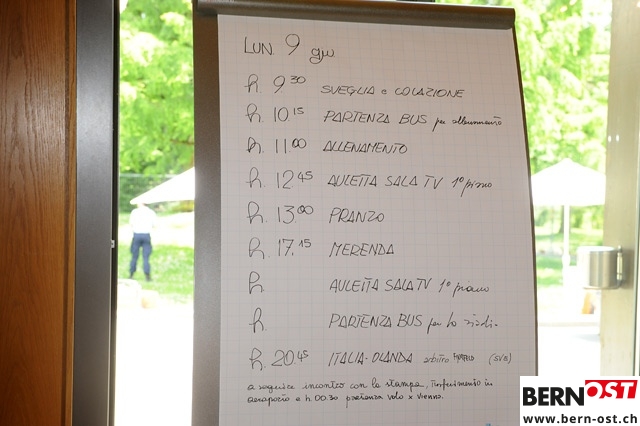 LUN 9 giu
h 9 30 SVEGLIA e COLAZIONE
h. 10.15 PARTENZA BUS per allenamento
h. 11 00 ALLENAMENTO
h. 12 45 AULETTA SALA TV 1° piano
h. 13.00 PRANZO
h. 17.15 MERENDA
h AULETTA SALA TV 1° piano
h. PARTENZA BUS per lo stadio
h. 20.45 ITALIA-OLANDA arbitro (SVE)
a seguire incontro con la stampa, trasferimento in
aeroporto e h 00.30 partenza volo x Vienna.
BERNOST
www.bern-ost.ch